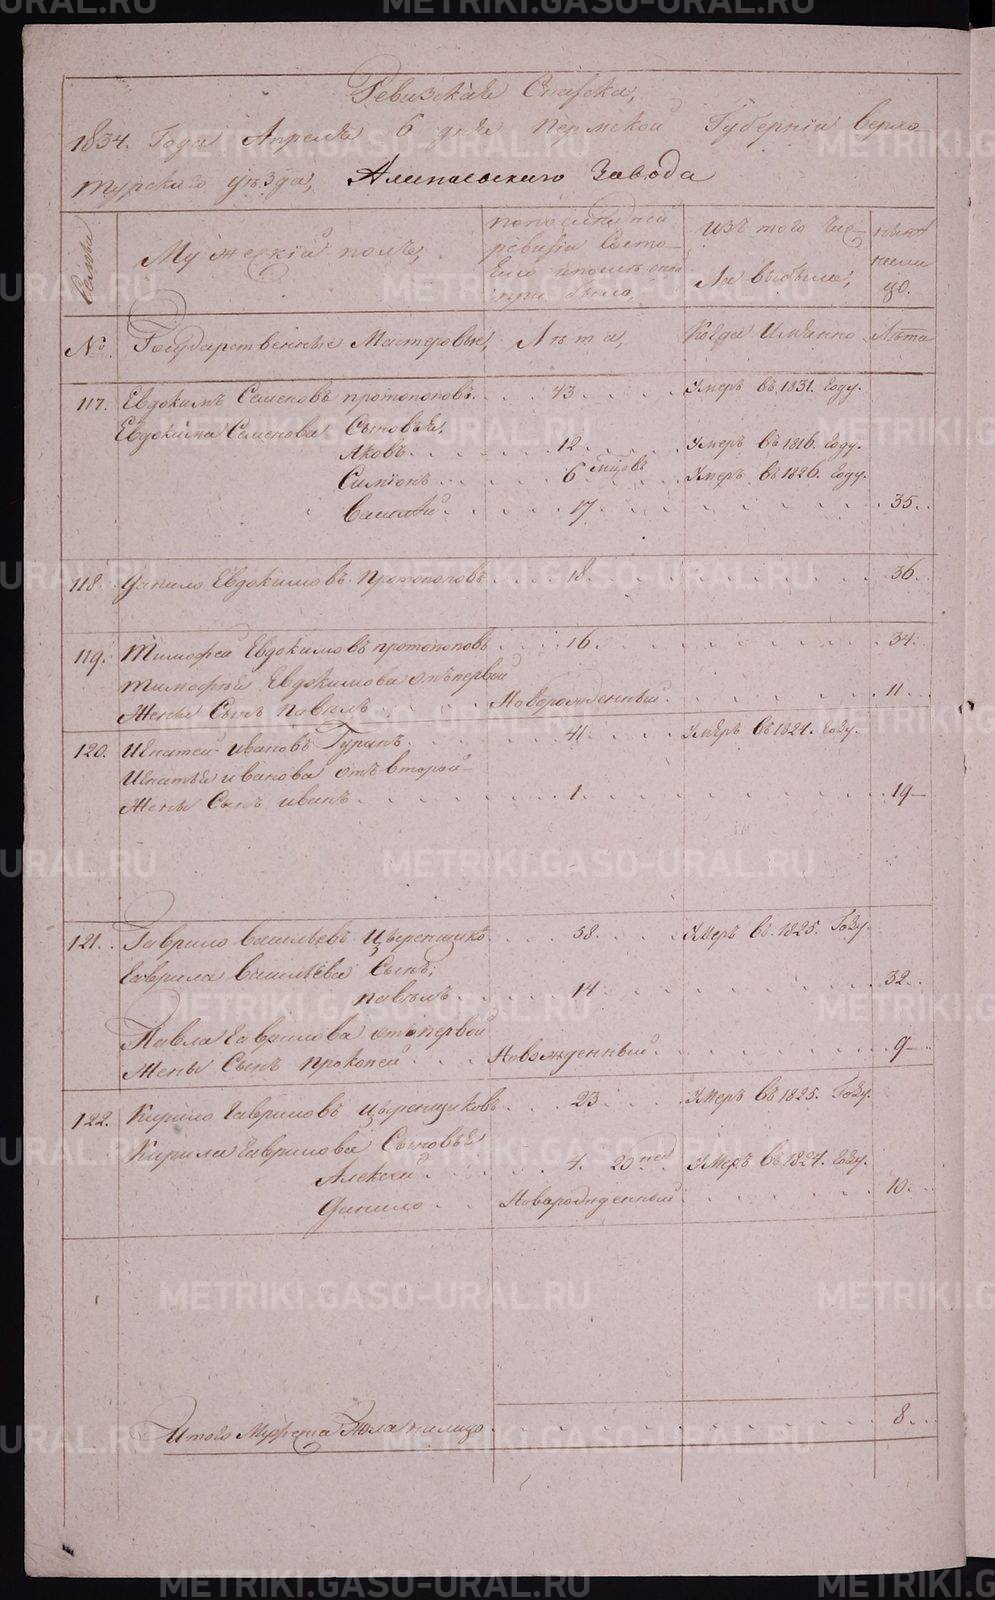 Ревизская Сказка,
1834. Года Апреля 6 дня Пермской Губернии Верхо
турского уезда, Алапаевского Завода
Семьи
Мужескiй полъ,
по последней ревизiи состояло и после оной прибыло,
изъ того числа выбыло,
ныне на лицо.
№
Государственные Мастеровые,
Лета,
Когда Имянно
Лета
117. Евдокимъ Семеновъ протопоповъ . . 43 . . . Умеръ въ 1831. Году.
Евдокима Семенова Сыновья,
Яковъ . . . . . 12 . . . Умеръ въ 1816. Году.
Симiонъ . . . . 6 мцовъ Умеръ въ 1826. Году.
Василий . . . . 17 . . . . . . . . . 35.
118. Данило Евдокимовъ Протопоповъ . . 18 . . . . . . . . 36.
119. Тимофей Евдокимовъ протопоповъ . . 16 . . . . . . . . 34.
Тимофея Евдокимова отъ первой
Жены Сынъ Павелъ . . . . Новорожденный . . . . . . . 11
120. Игнатей Ивановъ Гуринъ . . . . 41 . . . Умеръ въ 1821. Году.
Игнатья иванова отъ второй
Жены Сынъ иванъ . . . . . 1. . . . . . . . . 19
121. Гаврило васильевъ Цыренщиковъ . . . 58 . . . Умеръ въ 1825. Году.
Гаврила васильева Сынъ,
павелъ . . . . . 14 . . . . . . . . 32.
Павла гаврилова от первой
Жены Сынъ прокопей . . . Новожденный . . . . . . . 9
122. Кирило Гавриловъ цыренщиковъ . . 23 . . . Умеръ въ 1825. Году.
Кирила гаврилова Сыновья
Алексей . . . . 4. 20 нед Умеръ въ 1824. Году.
Данило . . . Новарожденный . . . . . . . 10.
Итого Мужеска Пола налицо . . . . . . . . . 8
METRIKI.GASO-URAL.RU